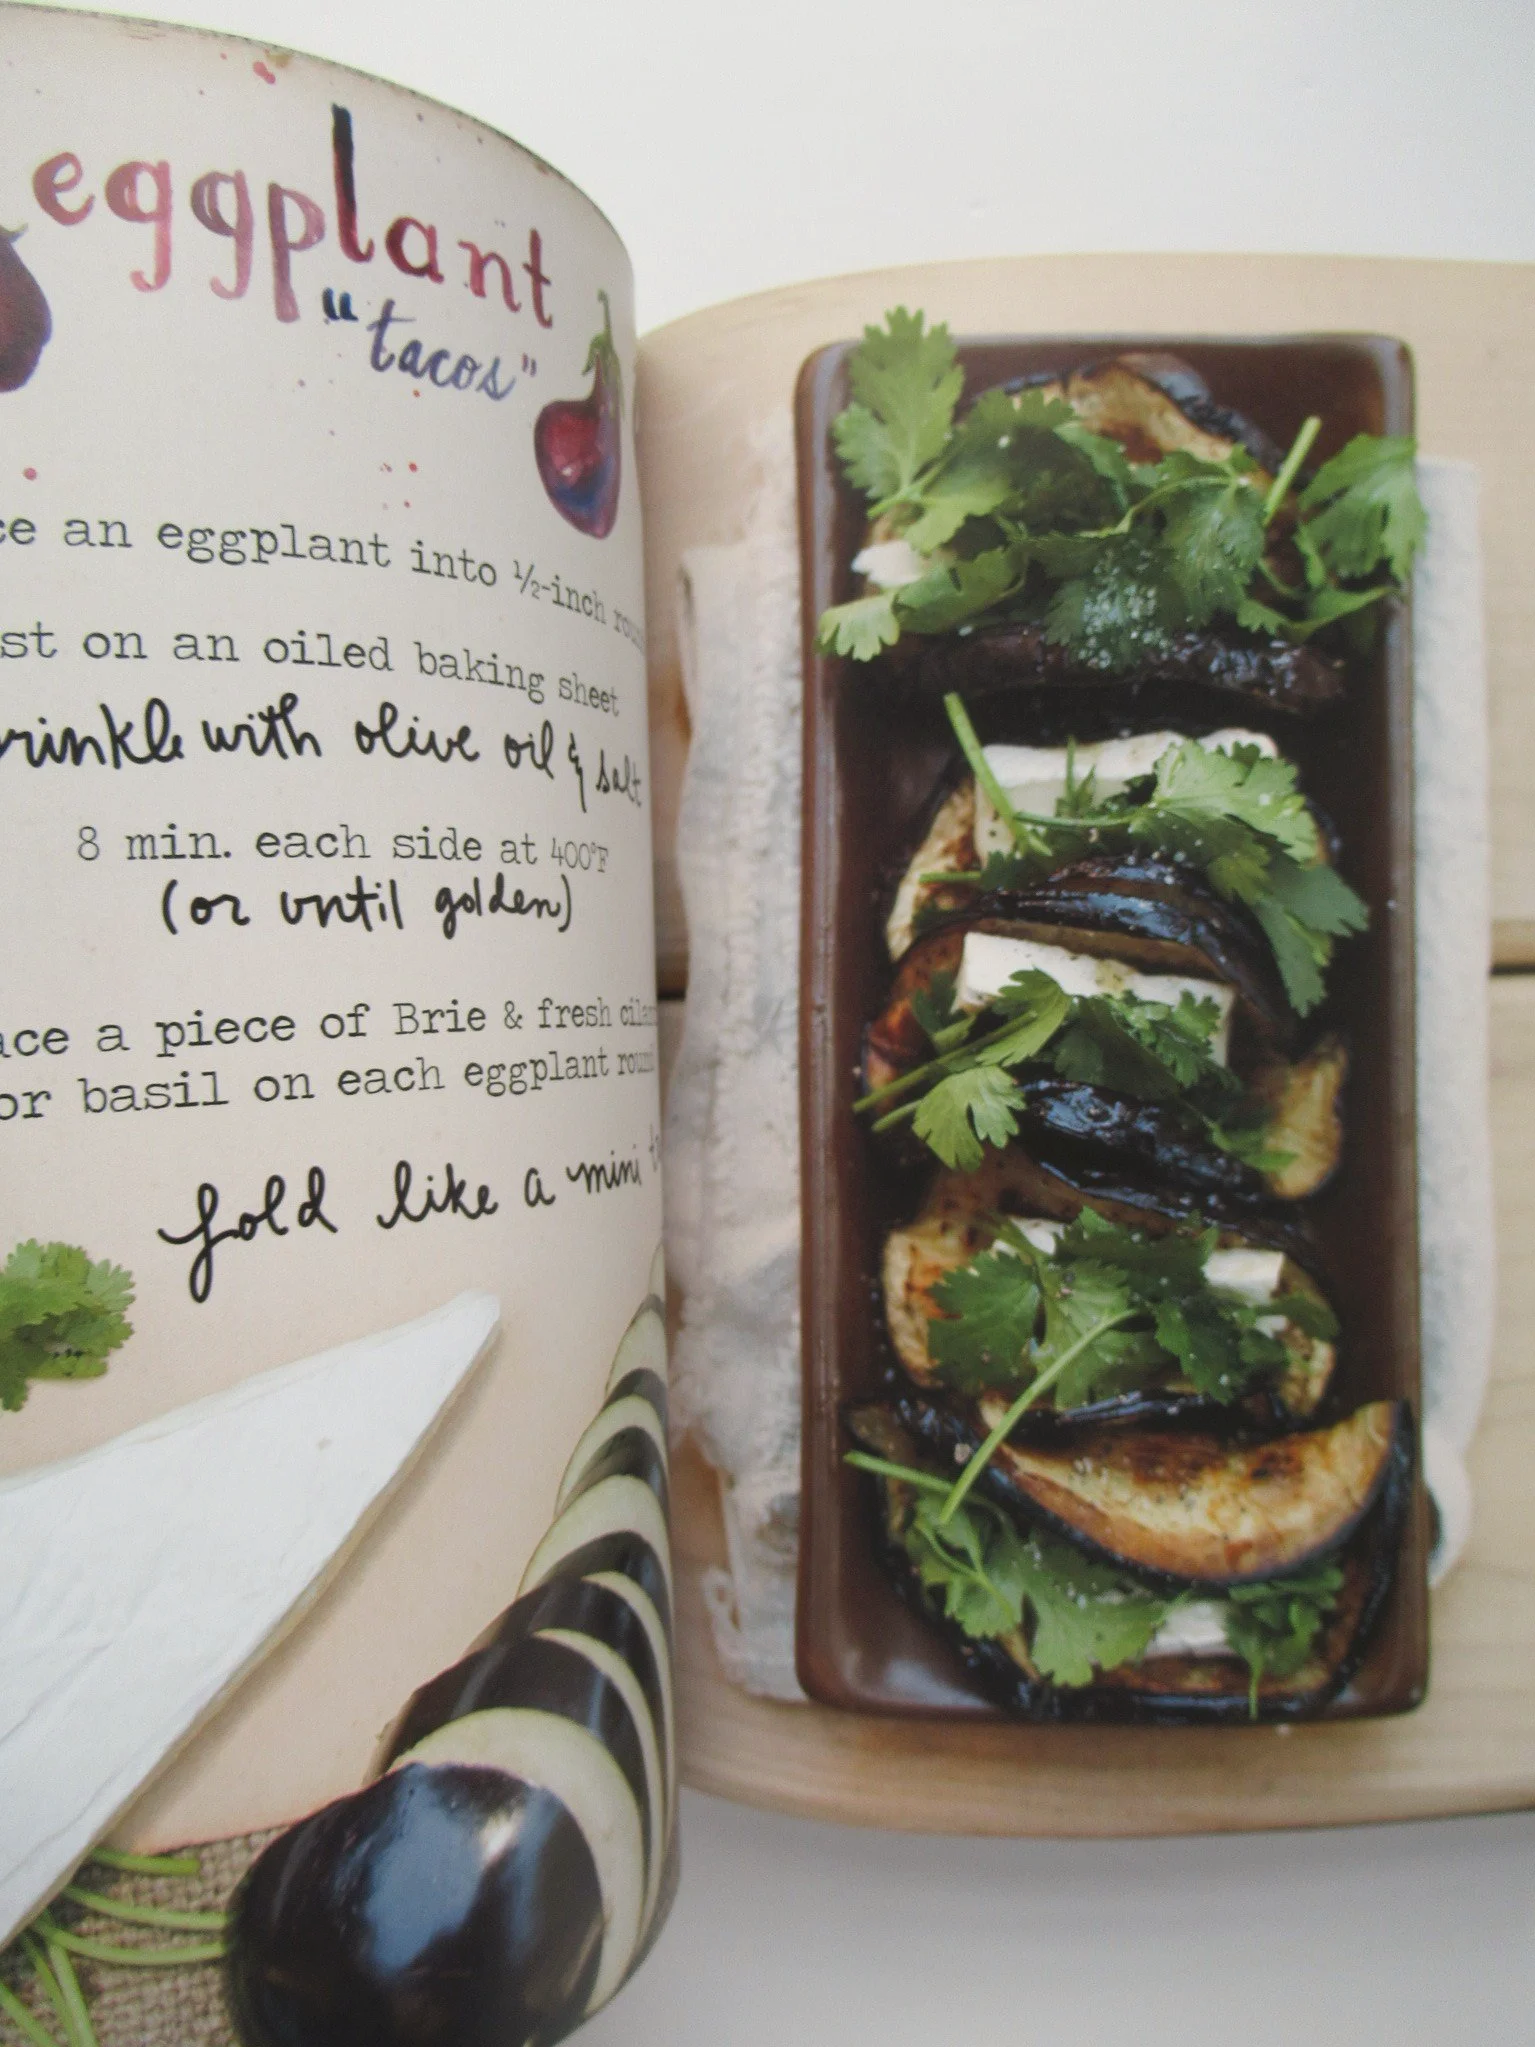 eggplant
"tacos"
an eggplant into ½-inch
on an oiled baking sheet
with olive oil & salt
8 min. each side at 400°F
(or until golden)
a piece of Brie & fresh
or basil on each eggplant
fold like a mini